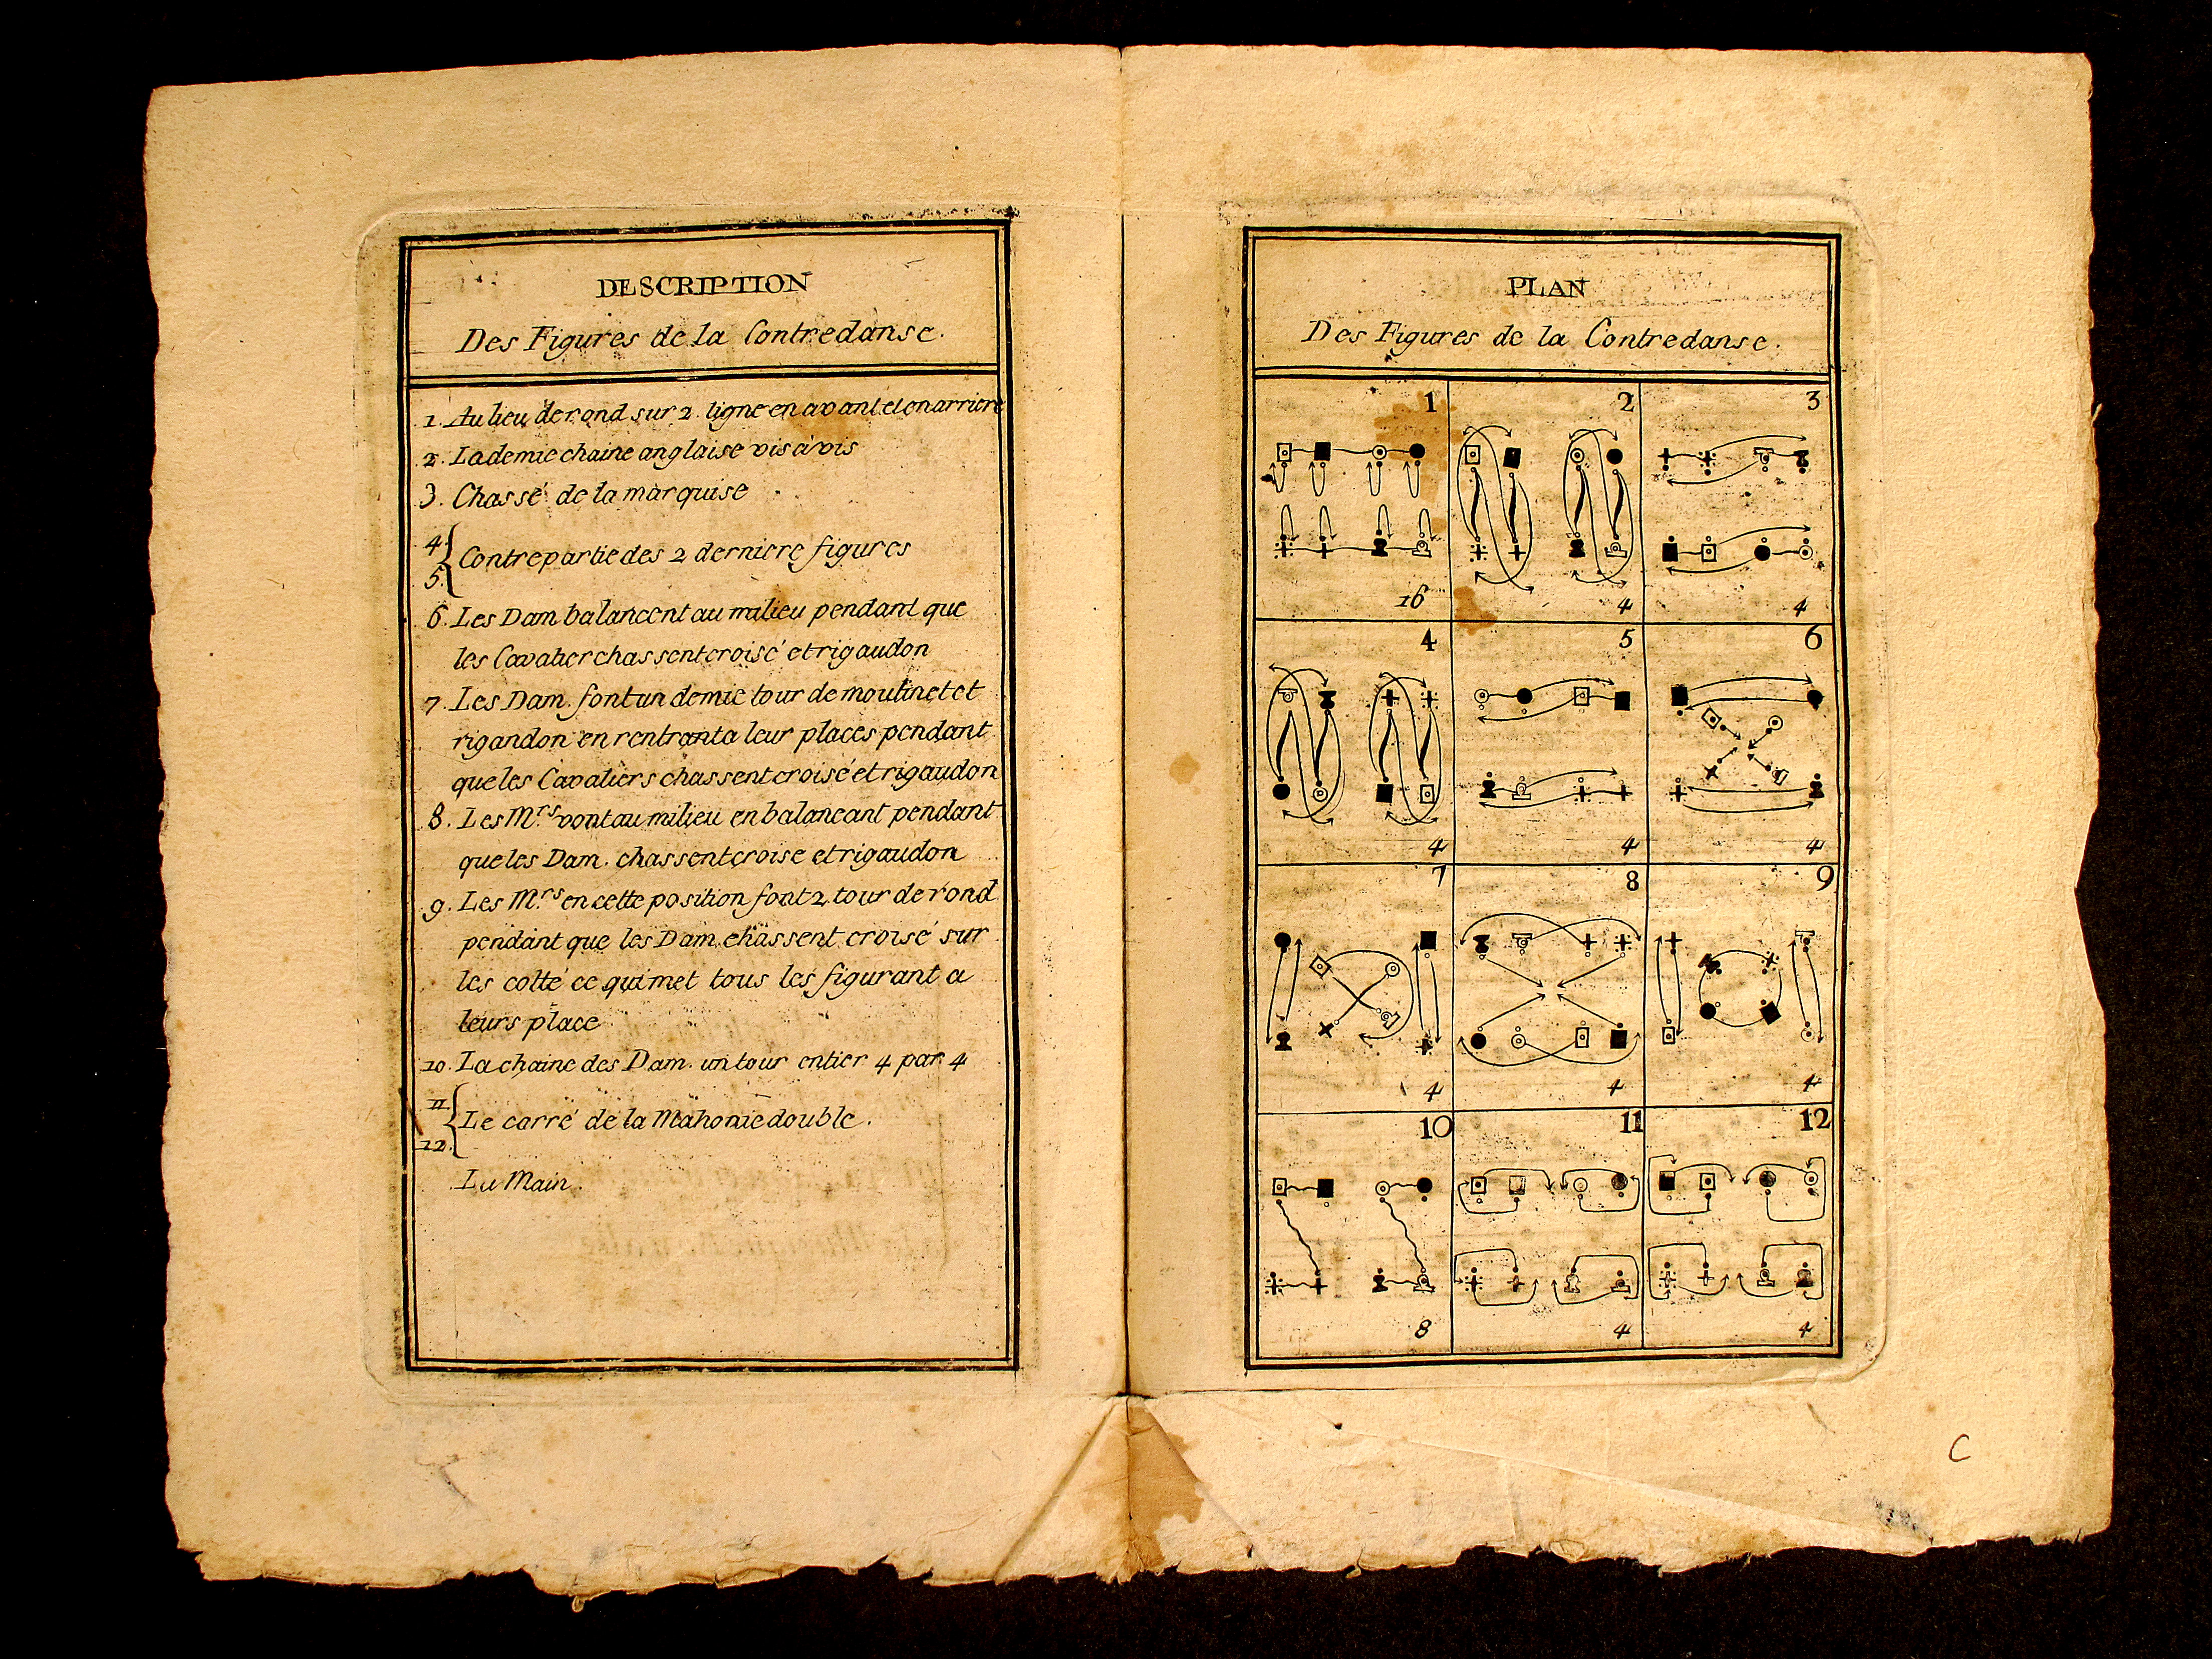 DESCRIPTION
Des Figures de la Contredanse.
1. Au lieu de rond sur 2. ligne en avant et en arriere
2. La demie chaine anglaise vis à vis
3. Chassé de la marquise
4.
Contrepartie des 2 derniere figures
5.
6. Les Dam balancent au milieu pendant que
les Cavalier chassent croisé et rigaudon
7. Les Dam. font un demie tour de moulinet et
rigandon en rentrant a leur places pendant
que les Cavaliers chassent croisé et rigaudon
8. Les M.rs vont au milieu en balancant pendant
que les Dam. chassent croise et rigaudon
9. Les M.rs en cette position font 2. tour de rond
pendant que les Dam. chassent croisé sur
les colté ce qui met tous les figurant a
leurs place
10. La chaine des Dam. un tour entier 4 par 4
11
Le carré de la Mahonie double.
12.
La Main.
PLAN
Des Figures de la Contredanse.
1 2 3
16 4 4
4 5 6
4 4 4
7 8 9
4 4 4
10 11 12
8 4 4
C